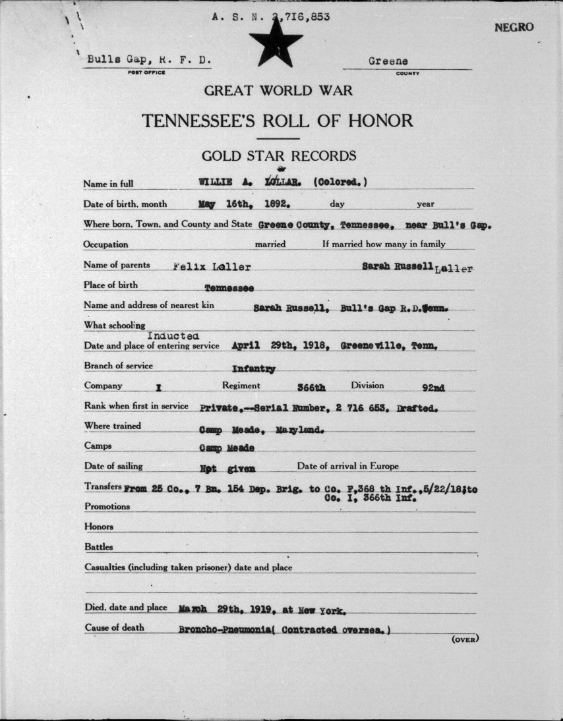 A. S. N. 2,716,853
NEGRO
Bulls Gap, R. F. D.
Greene
POST OFFICE
COUNTY
GREAT WORLD WAR
TENNESSEE'S ROLL OF HONOR
GOLD STAR RECORDS
Name in full WILLIE A. LOLLAR. (Colored.)
Date of birth, month May 16th, 1892. day year
Where born, Town, and County and State Greene County, Tennessee, near Bull's Gap.
Occupation married If married how many in family
Name of parents Felix Loller Sarah Russell Loller
Place of birth Tennessee
Name and address of nearest kin Sarah Russell, Bull's Gap R.D. Tenn.
What schooling
Inducted
Date and place of entering service April 29th, 1918, Greeneville, Tenn.
Branch of service Infantry
Company I Regiment 366th Division 92nd
Rank when first in service Private,--Serial Number, 2 716 653. Drafted.
Where trained Camp Meade, Maryland.
Camps Camp Meade
Date of sailing Not given Date of arrival in Europe
Transfers From 25 Co., 7 Bn. 154 Dep. Brig. to Co. F,368 th Inf.,5/22/18;to
Co. I, 366th Inf.
Promotions
Honors
Battles
Casualties (including taken prisoner) date and place
Died, date and place March 29th, 1919, at New York.
Cause of death Broncho-Pneumonia( Contracted oversea.)
(OVER)